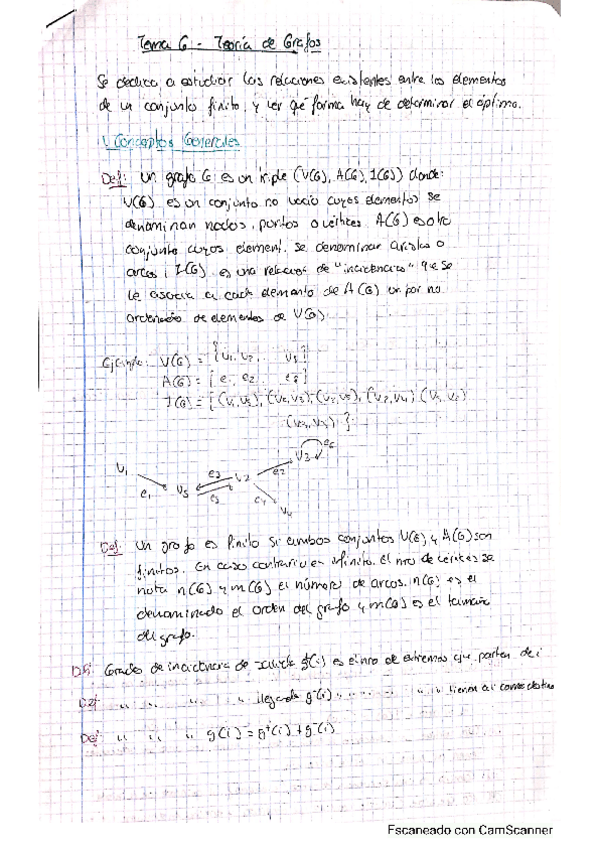 Tema 6 - Teoría de Grafos
Se dedica a estudiar las relaciones existentes entre los elementos
de un conjunto finito, y ver qué forma hay de determinar el óptimo.
1. Conceptos Generales
Def: Un grafo G es un triple (V(G), A(G), I(G)) donde:
V(G) es un conjunto no vacío cuyos elementos se
denominan nodos, puntos o vértices. A(G) es otro
conjunto cuyos element. se denominan aristas o
arcos; I(G) es una relación de "incidencia" que se
le asocia a cada elemento de A(G) un par no
ordenado de elementos de V(G).
Ejemplo: V(G) = {v1, v2, v5}
A(G) = {e1, e2 e6}
I(G) =
v1 e1 v5 e3 v2 e2 v3 e6
e4 v4
Def: Un grafo es finito si ambos conjuntos V(G) y A(G) son
finitos. En caso contrario es infinito. El nro de vértices se
nota n(G) y m(G) el número de arcos. n(G) es el
denominado el orden del grafo y m(G) es el tamaño
del grafo.
Def: Grados de incidencia de salida g+(i) es el nro de extremos que parten de i
Def: " " " " llegada g-(i) " " " "
Def: " " " g(i) = g+(i) + g-(i)
Escaneado con CamScanner